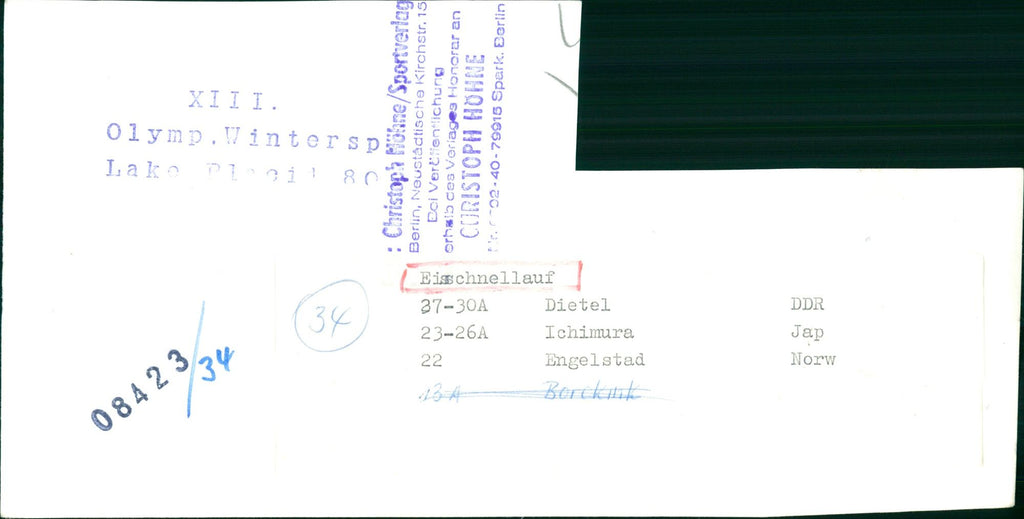 XIII.
Olymp.Wintersp
Lake Placid 80
: Christoph Höhne/Sportverlag
Berlin, Neustädtische Kirchstr. 15
Bei Veröffentlichung
erhalb des Verlages Honorar an
CHRISTOPH HÖHNE
02-40-79915 Spark. Berlin
Eisschnellauf
27-30A Dietel DDR
23-26A Ichimura Jap
22 Engelstad Norw
13A Borckink
34
08423/34